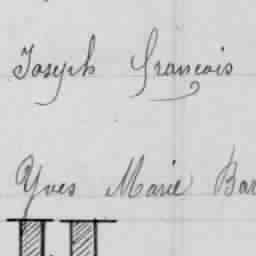 Joseph François
Yves Marie Bar